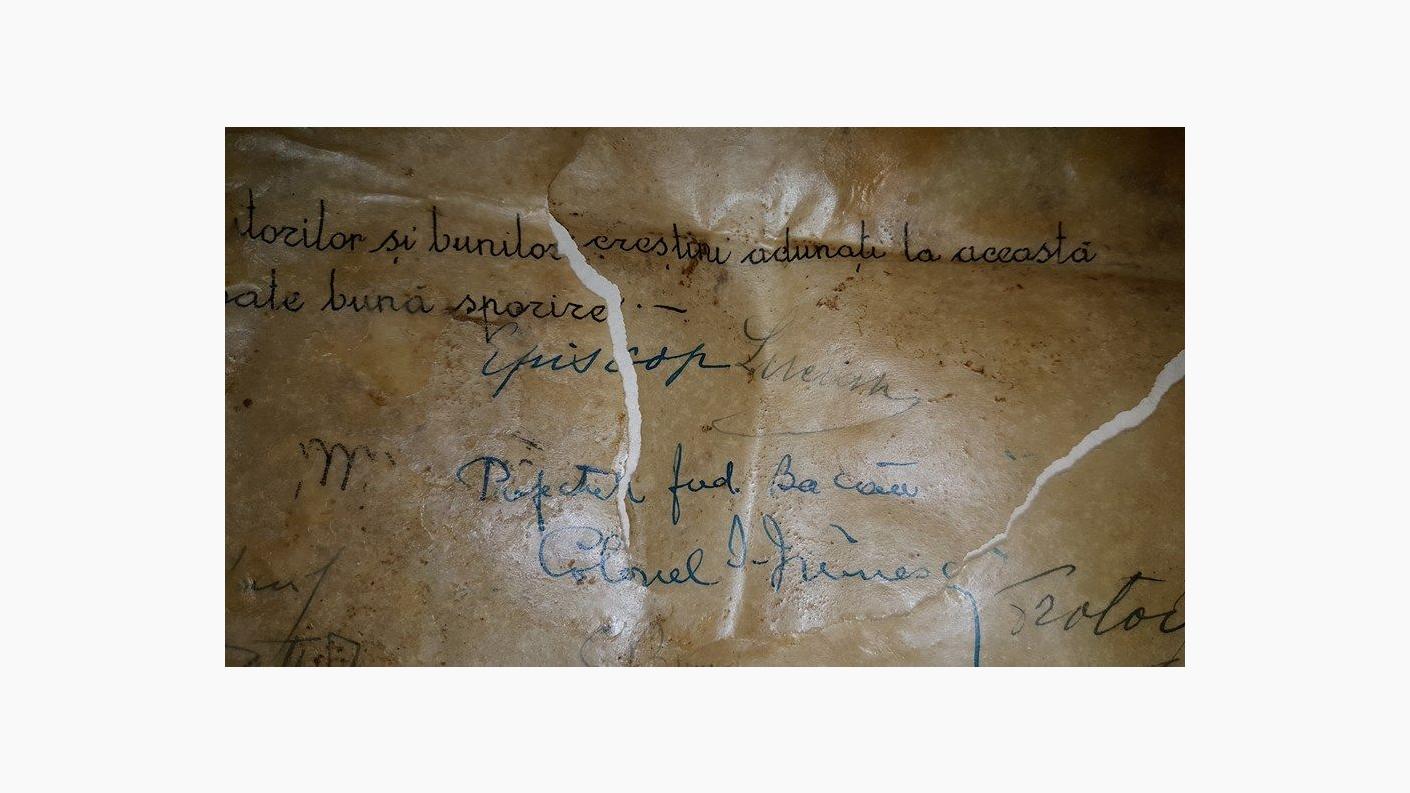 itorilor și bunilor creștini adunați la această
oate bună sporire. —
Episcop Lucian
Prefectul Jud. Bacău
Colonel I.